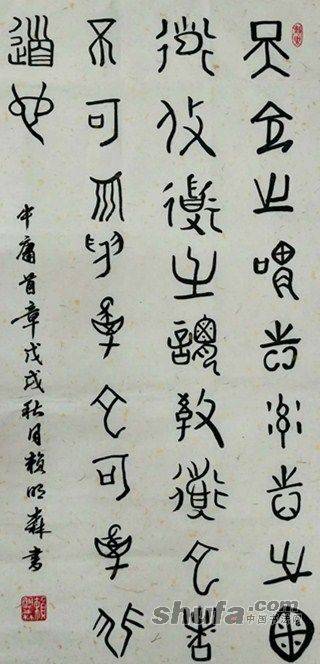 天命之謂性率性之謂
道修道之謂教道也者
不可須臾離也可離非
道也
中庸首章戊戌秋月賴明森書
shufa.com
中国书法网